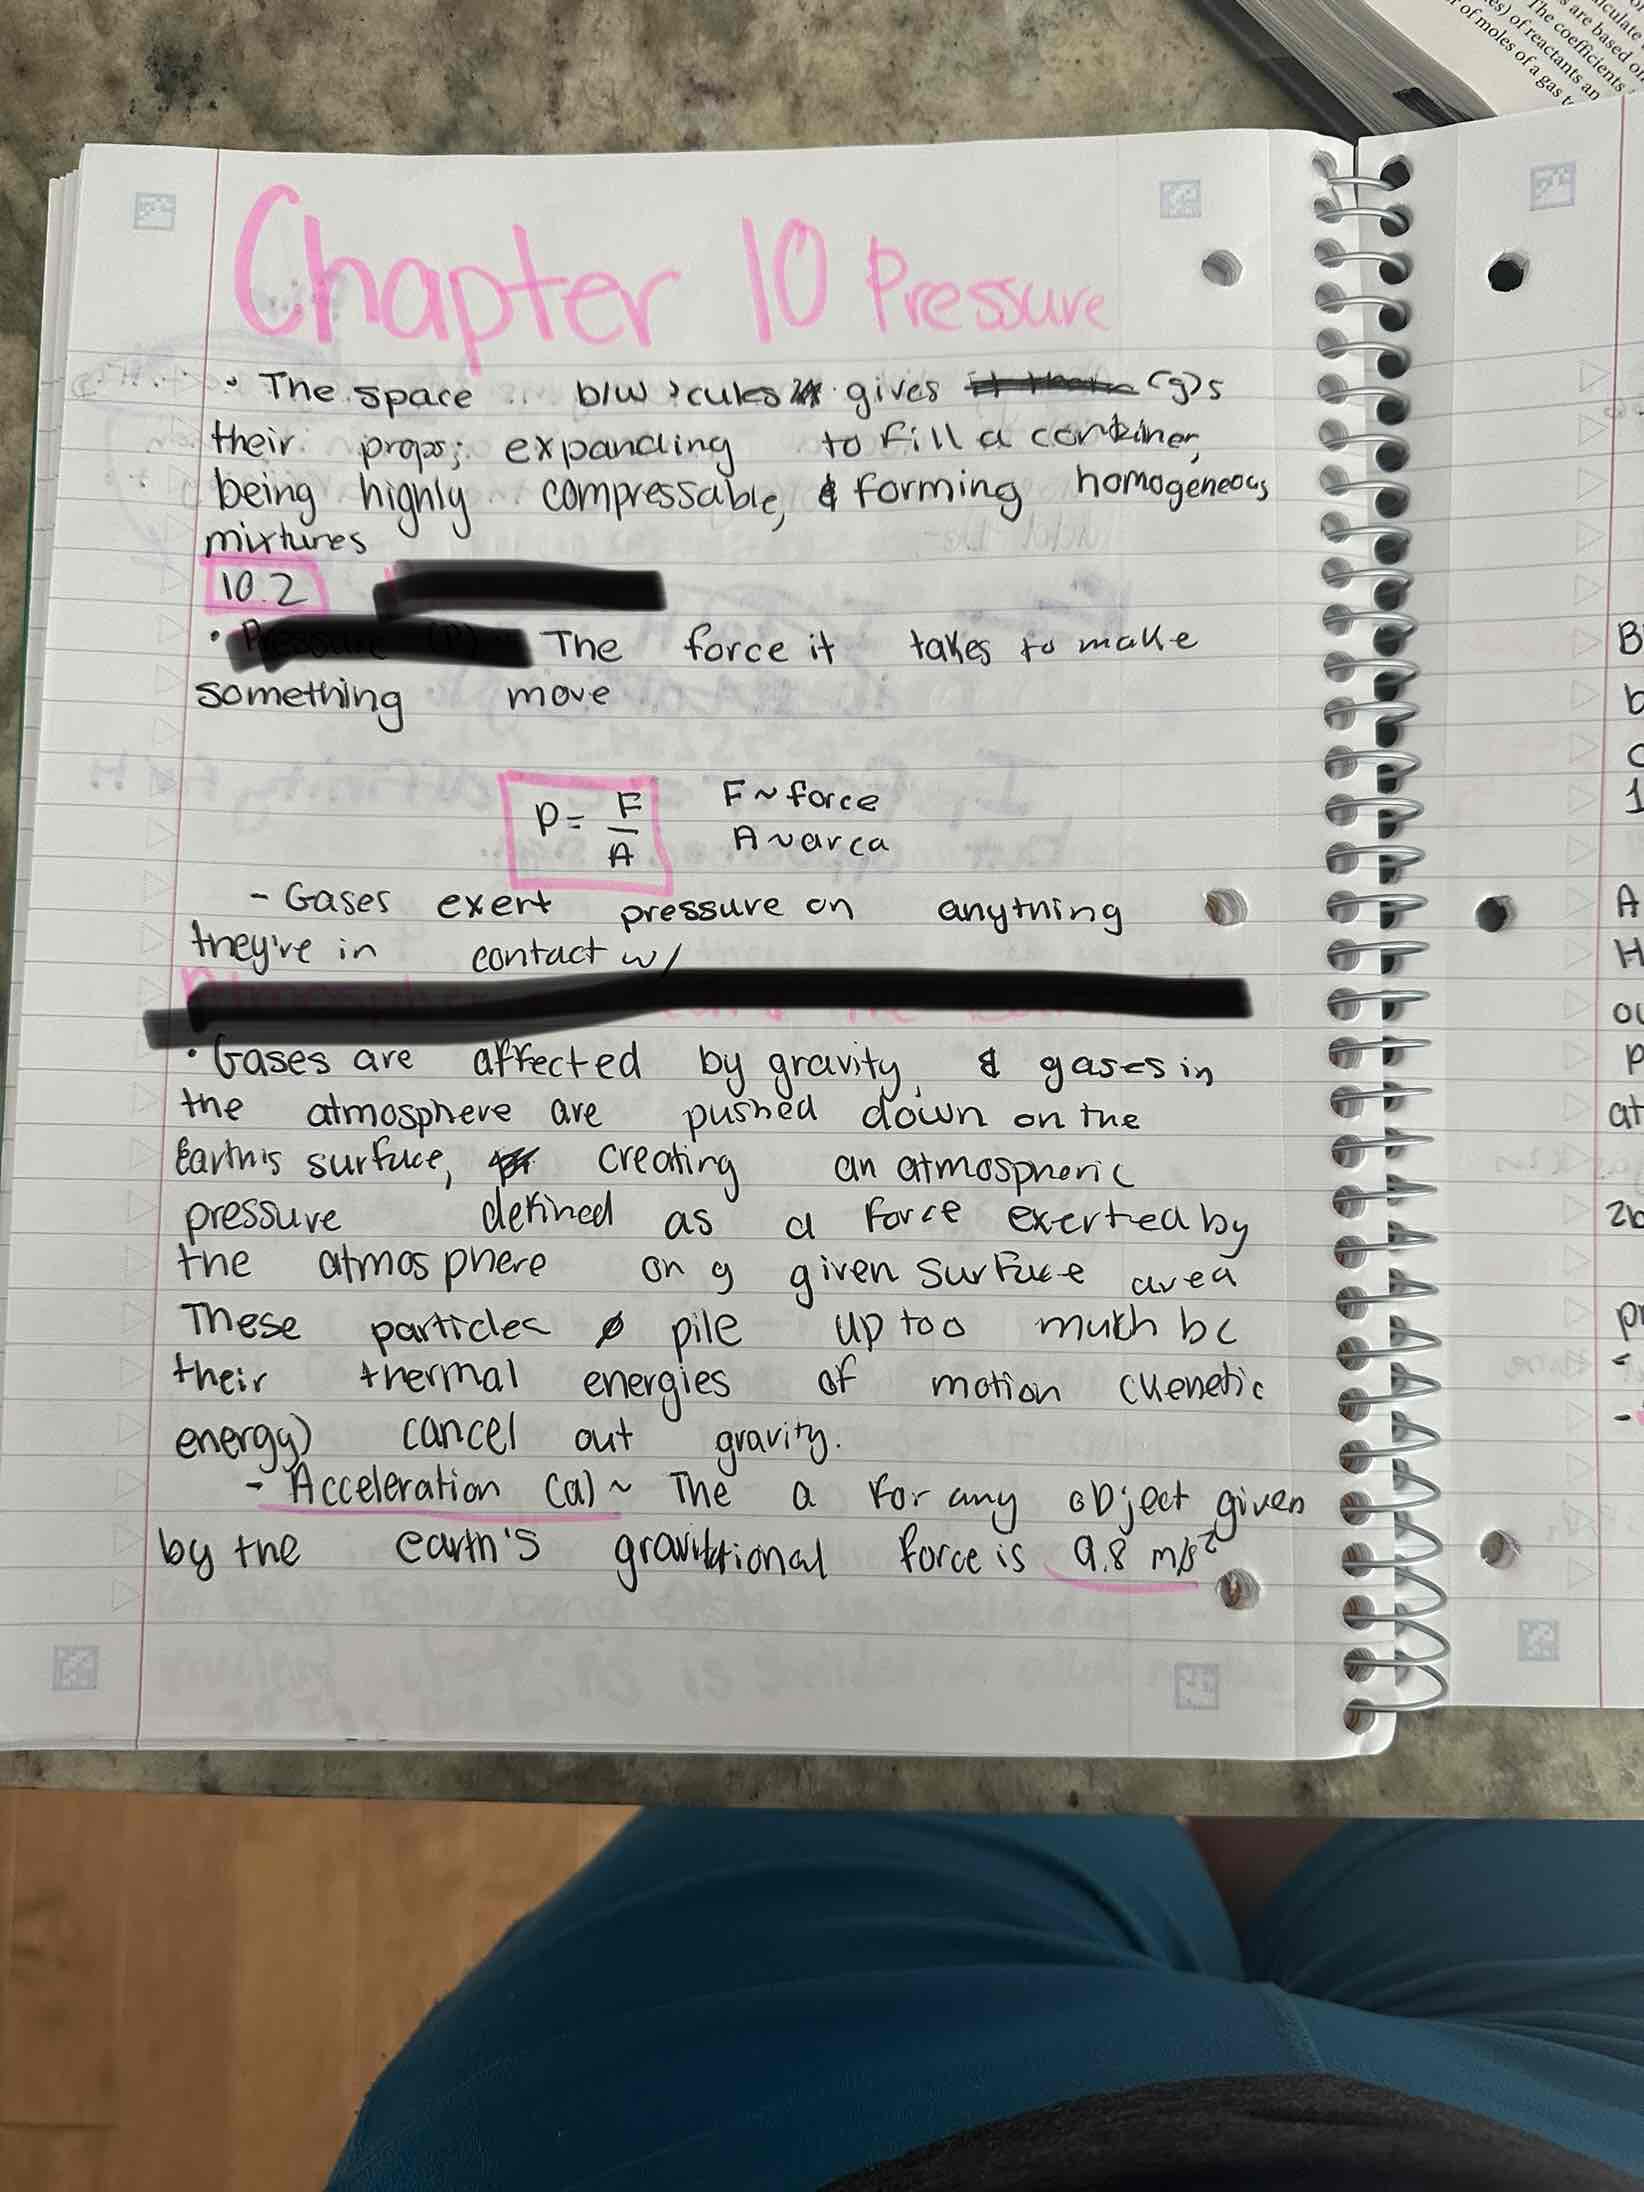 Chapter 10 Pressure
• The space b/w >cules gives (g)s
their props; expanding to fill a container,
being highly compressable, & forming homogeneous
mixtures
10.2
• Pressure (P) The force it takes to make
something move
P = F/A
F ~ force
A ~ area
- Gases exert pressure on anything
they're in contact w/
• Gases are affected by gravity, & gases in
the atmosphere are pushed down on the
Earth's surface, creating an atmospheric
pressure defined as a force exerted by
the atmosphere on a given surface area
These particles pile up too much bc
their thermal energies of motion (kenetic
energy) cancel out gravity.
- Acceleration (a) ~ The a for any object given
by the earth's gravitational force is 9.8 m/s²
alculate
es) of reactants an
The coefficients
are based on
r of moles of a gas t